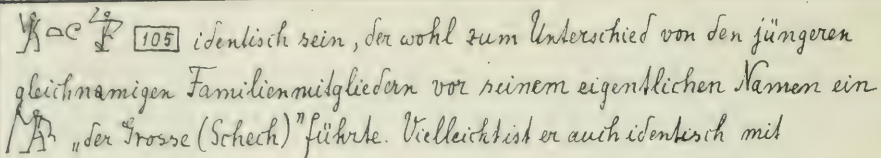 [105] identisch sein, der wohl zum Unterschied von den jüngeren
gleichnamigen Familienmitgliedern vor seinem eigentlichen Namen ein
„der Grosse (Schech)" führte. Vielleicht ist er auch identisch mit